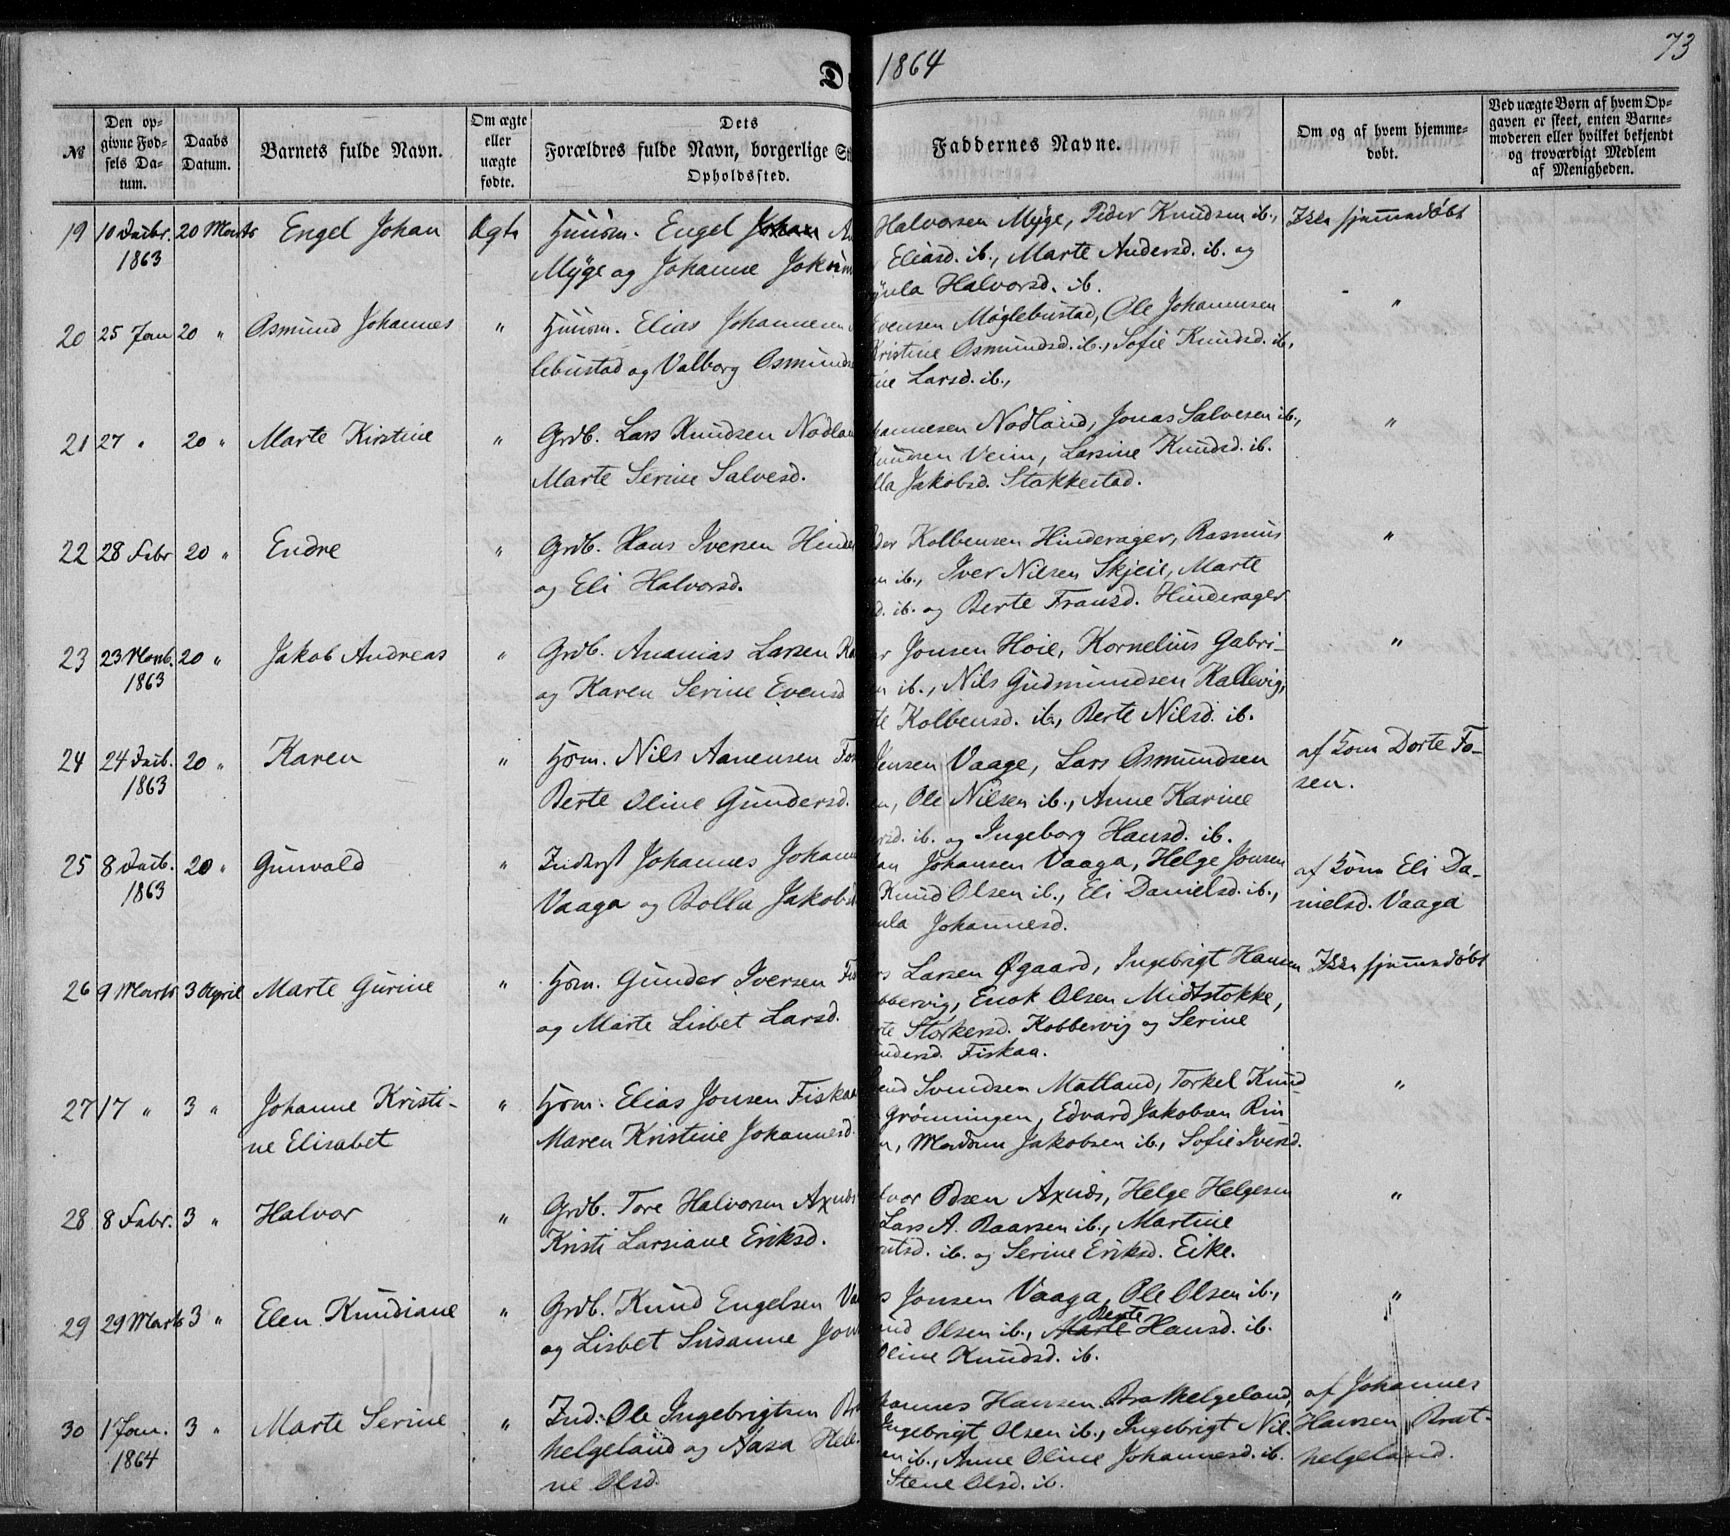 1864
73
№
Den op-
givne Fød-
sels Da-
tum.
Daabs
Datum.
Barnets fulde Navn.
Om ægte
eller
uægte
fødte.
Dets
Forældres fulde Navn, borgerlige
Opholdssted.
Faddernes Navne.
Om og af hvem hjemme-
døbt.
Ved uægte Børn af hvem Op-
gaven er skeet, enten Barne-
moderen eller hvilket bekjendt
og troværdigt Medlem
af Menigheden.
19 10 1863 20 Marts Engel Johan Ægte Huusm. Engel Johan
Myge og Johanne
Halvorsen Myge, Peder Knudsen ib.,
Eliasd. ib., Marte Andersd. ib. og
Halvorsd. ib.
Ikke hjemmedøbt
20 25 Jan 20 " Osmund Johannes " Huusm. Elias
lebustad og Valborg
Møglebustad, Ole Johannesen
Kristine Osmundsd. ib., Sofie Knudsd. ib.,
Larsd. ib.,
"
21 27 " 20 " Marte Kirstine " Grdb. Lars Knudsen
Marte Serine Salvesd.
Nodland, Jonas Salvesen ib.,
Knudsen Veim, Larsine Knudsd. ib.
Jakobsd. Stakkestad.
"
22 28 Febr 20 " Endre " Grdb. Hans Iversen
og Eli Halvorsd.
Kolbensen Hinderager, Rasmus
ib., Iver Nilsen Skjeie, Marte
ib. og Berte Fransd. Hinderager
"
23 23 Novb. 1863 20 " Jakob Andreas " Grdb. Ananias Larsen
og Karen Serine Evensd
Jonsen Høie, Kornelius Gabri-
ib., Nils Gudmundsen Kallevig,
Kolbensd. ib., Berte Nilsd. ib.
"
24 24 1863 20 " Karen " Hsm. Nils Aanensen
Berte Oline Gundersd.
Jensen Vaage, Lars Osmundsen
Ole Nilsen ib., Anne Karine
ib. og Ingeborg Hansd. ib.
af Kone Dorte Fo-
sen.
25 8 1863 20 " Gunvald " Inderst Johannes
Vaaga og Bolla
Johansen Vaaga, Helge Jonsen
Knud Olsen ib., Eli Danielsd. ib.,
Johannesd.
af Kone Eli Da-
nielsd. Vaaga
26 9 Marts 3 April Marte Gurine " Hsm. Gunder Iversen
og Marte Lisbet Larsd.
Larsen Øgaard, Ingebrigt Hansen
Enok Olsen Midtstokke,
Storkersd. Kobbervig og Serine
Fiskaa.
Ikke hjemmedøbt
27 17 " 3 " Johanne Kristi-
ne Elisabet " Hsm. Elias Jonsen Fiskaa
Maren Kristine Johannesd.
Svendsen Matland, Torkel Knud
Grønningen, Edvard Jakobsen
Jakobsen ib., Sofie Iversd.
"
28 8 Febr. 3 " Halvor " Grdb. Tore Halvorsen
Kristi Larsiane Eriksd.
Helge Helgesen
Lars A. Baarsen ib., Martine
ib. og Serine Eriksd. Eike.
"
29 29 Marts 3 " Elen Knudiane " Grdb. Knud Engelsen
og Lisbet Susanne
Jonsen Vaaga, Ole Olsen ib.,
Berte
Olsen ib., Marte Hansd. ib.
Oline Knudsd. ib.
"
30 1 Jan. 1864 3 " Marte Serine " Ind: Ole Ingebrigtsen
helgeland og Aasa Hele-
ne Olsd.
Hansen Brathelgeland,
Ingebrigt Olsen ib., Ingebrigt Nil-
ib., Anne Oline Johannesd. ib.
Stene Olsd. ib.
af Johannes
Hansen Brat-
helgeland.